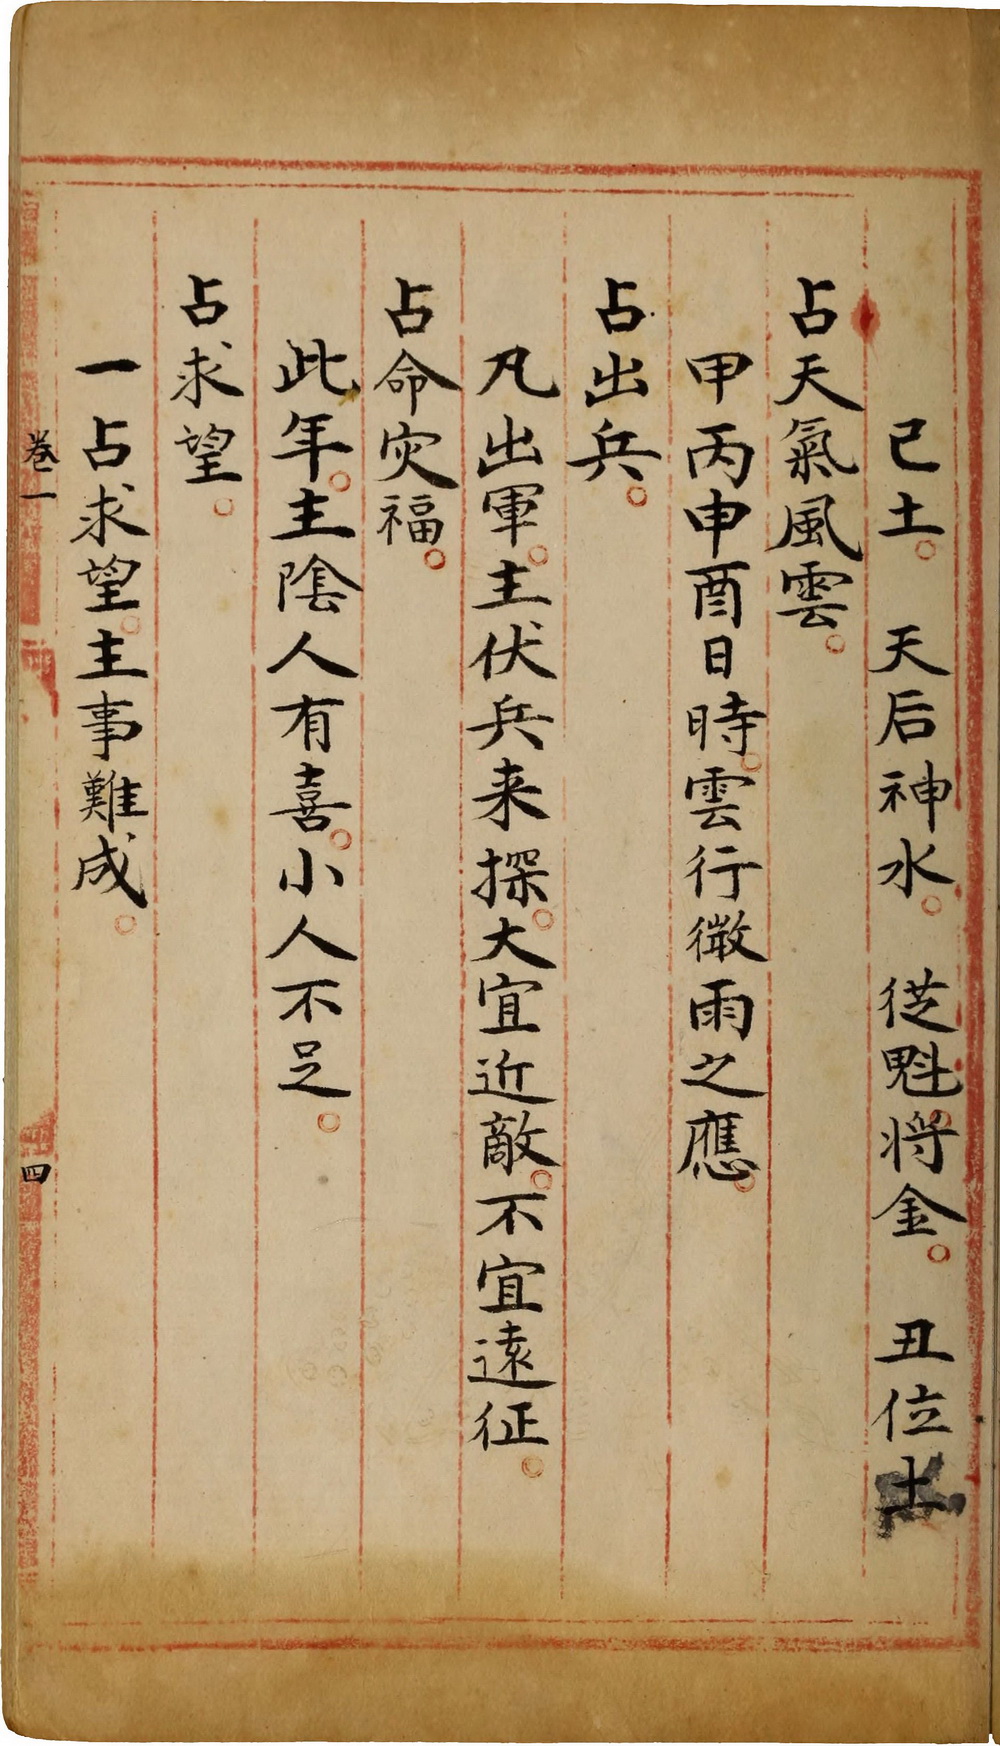 己土。 天后神水。 従魁将金。 丑位土
占天氣風雲。
甲丙申酉日時。雲行微雨之應。
占出兵。
凡出軍。主伏兵来探。大宜近敵。不宜遠征。
占命灾福。
此年。主陰人有喜。小人不足。
占求望。
一占求望。主事難成。
卷一
四